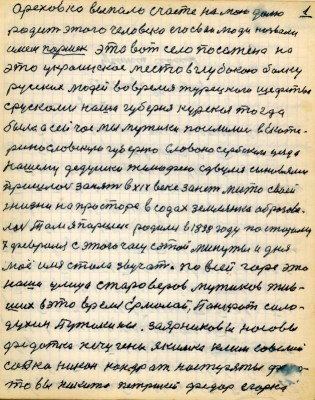 1
Ареховко выпало счасте на мою долю
родит этого человека его сваи люди назвали
имем паршек это вот село посажена на
это украинское место в глубокою балку
руских людей во время турецкого
срусками наша губерня курская тогда
была а сей час мы мужики поселили в Екоте-
ринославскую губерню Словоно сербского уезда
нашему дедушки тимофею сдвумя синовями
пришлося занят в XIX веке занет место своей
жизни на просторе в садах землянка образова-
лся Там я паршек родилси в 1898 году по старому
7 февроля с этого часу сотой минуты и дня
моё имя стала звучат. по всей горе это
наша улица староверов мужиков жив-
ших в это время Ермолай, Панкрат соло-
духин Путилины. заярниковы носовы
федотка нечугены якимка клим савелий
савка никон кондрат
то вы никита петрний федор егорка